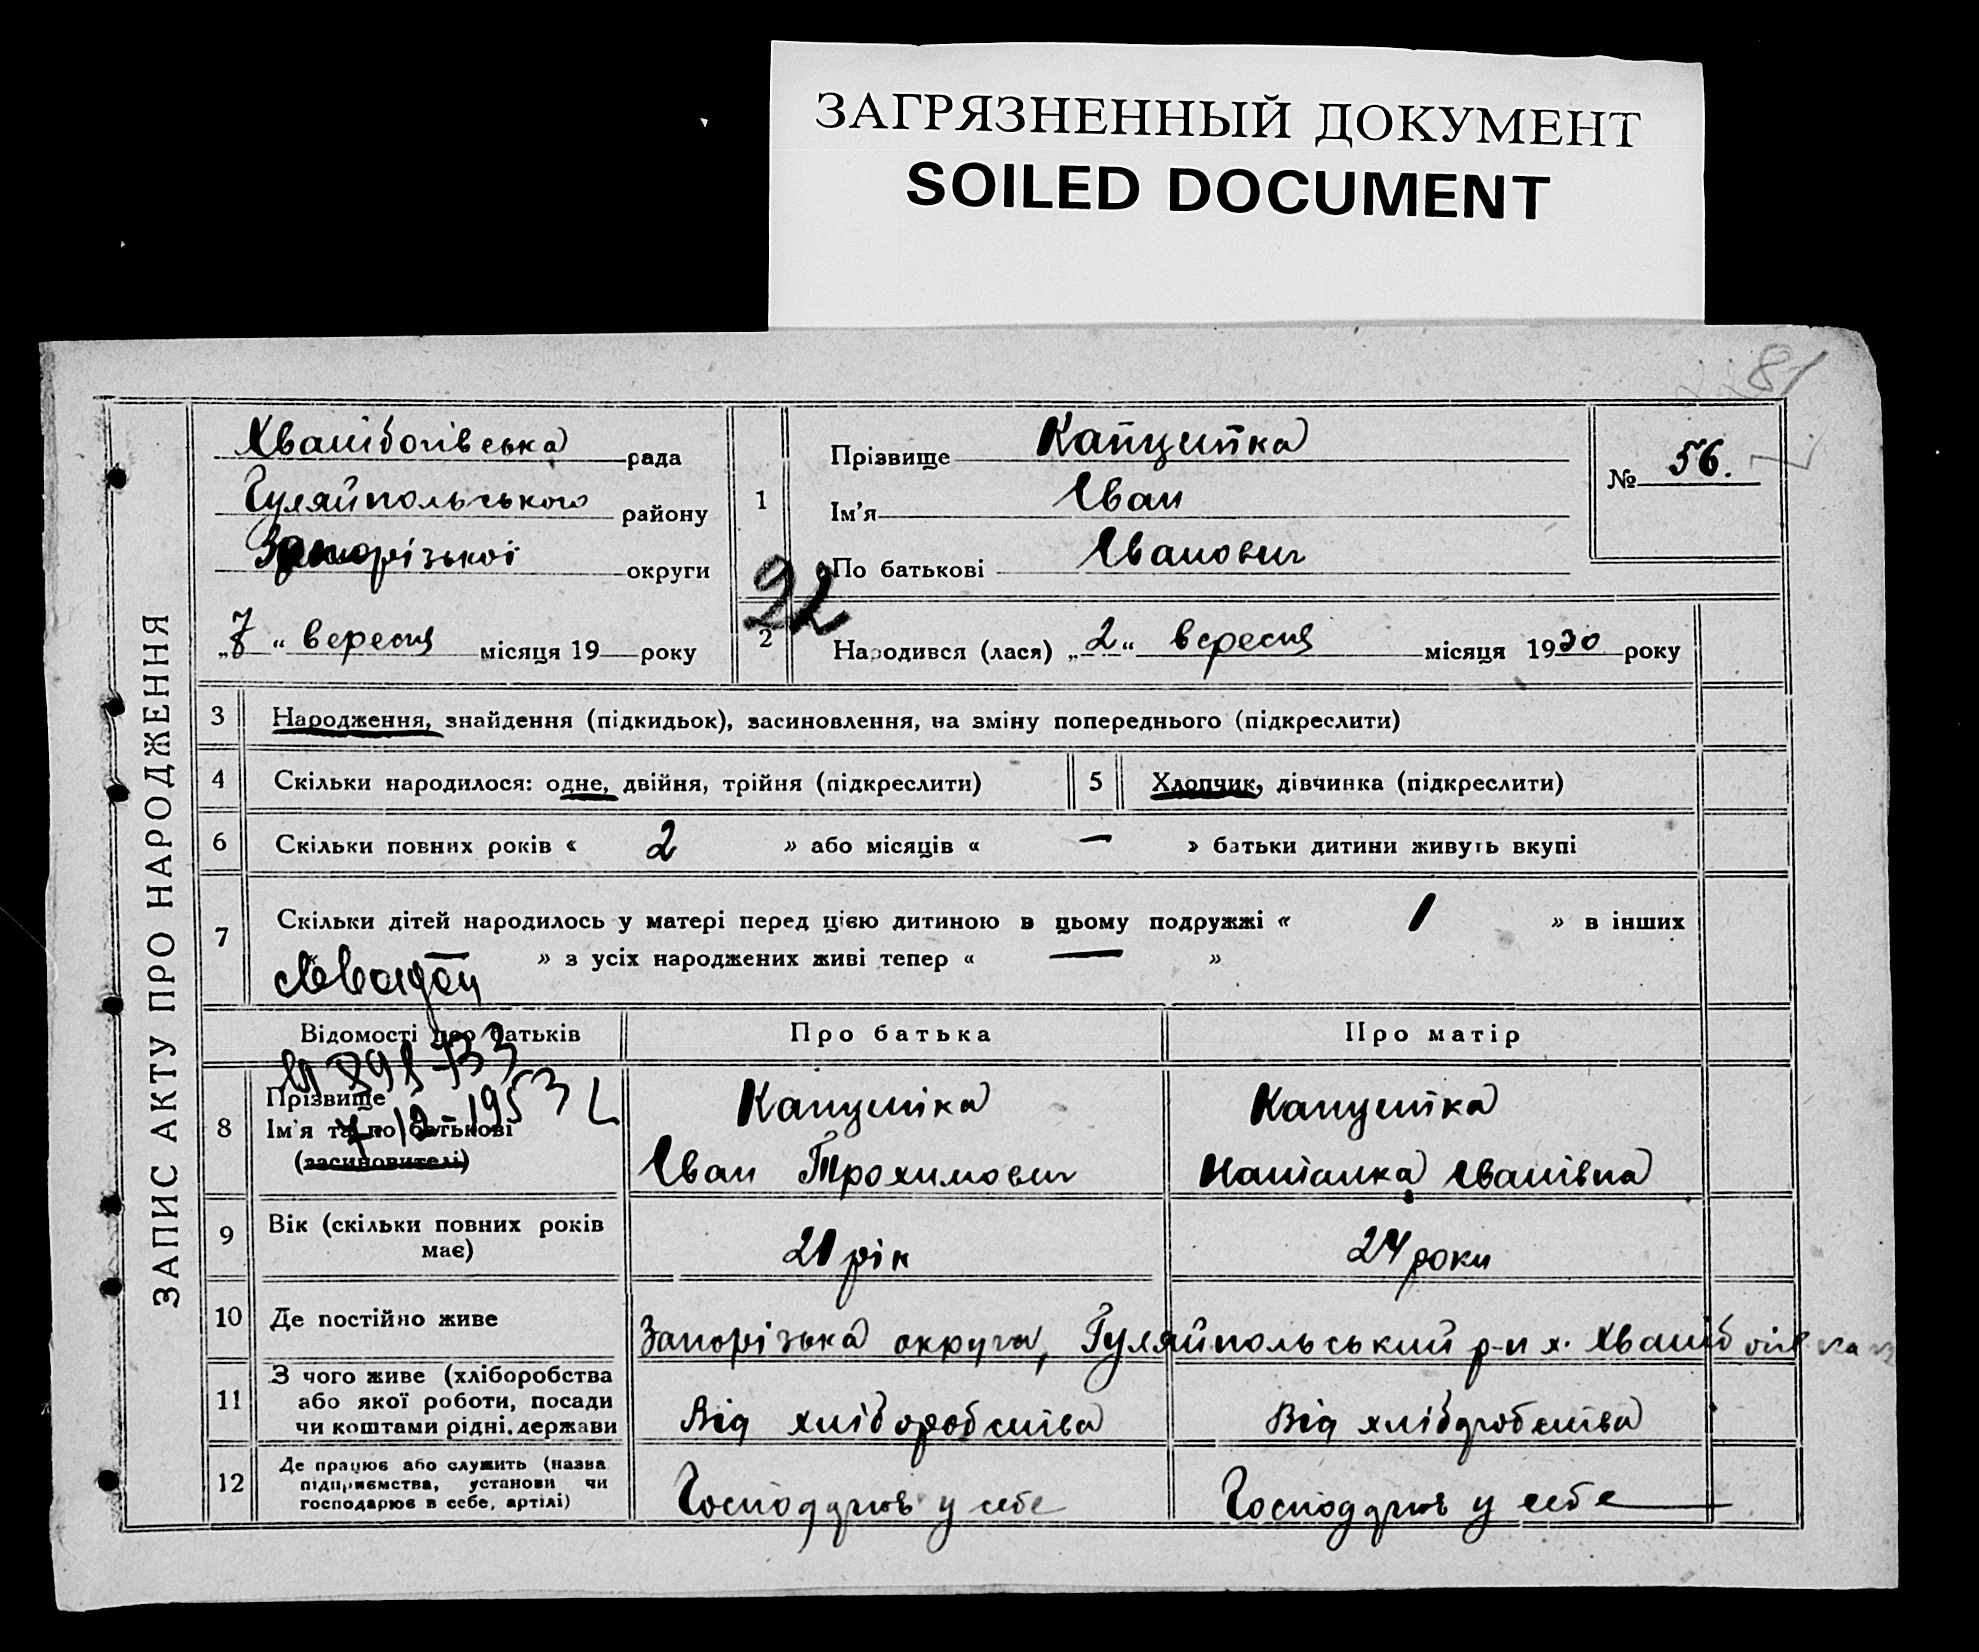 ЗАГРЯЗНЕННЫЙ ДОКУМЕНТ
SOILED DOCUMENT
81
ЗАПИС АКТУ ПРО НАРОДЖЕННЯ
Хвалібогівська рада
Гуляйпольського району
Запорізької округи
„7“ вересня місяця 19 року
1
Прізвище Капустка
Ім'я Іван
По батькові Іванович
№ 56.
92
2
Народився (лася) „2“ вересня місяця 1930 року
3 Народження, знайдення (підкидьок), засиновлення, на зміну попереднього (підкреслити)
4 Скільки народилося: одне, двійня, трійня (підкреслити) 5 Хлопчик, дівчинка (підкреслити)
6 Скільки повних років « 2 » або місяців « — » батьки дитини живуть вкупі
7 Скільки дітей народилось у матері перед цією дитиною в цьому подружжі « 1 » в інших
» з усіх народжених живі тепер « — »
Відомості про батьків Про батька Про матір
7-12-1953
8 Прізвище Капустка Капустка
Ім'я та по батькові
(засиновителі) Іван Трохимович Наталка Іванівна
9 Вік (скільки повних років має) 21 рік 24 роки
10 Де постійно живе Запорізька округа, Гуляйпольський р-н х. Хвалібогівка
11 З чого живе (хліборобства
або якої роботи, посади
чи коштами рідні, держави Від хліборобства Від хліборобства
12 Де працює або служить (назва
підприємства, установи чи
господарює в себе, артілі) Господарює у себе Господарює у себе